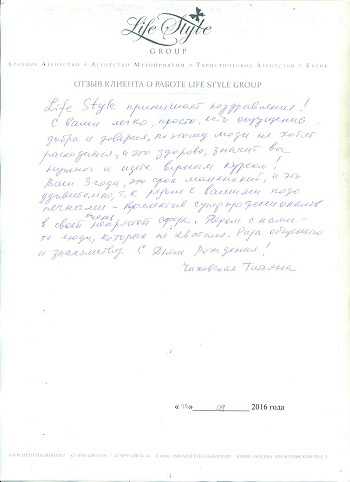 Life Style
GROUP
Брачное Агентство • Агентство Мероприятий • Туристическое Агентство •
ОТЗЫВ КЛИЕНТА О РАБОТЕ LIFE STYLE GROUP
Life Style принимает поздравления!
С вами легко, просто, есть ощущение
добра и доверия, поэтому люди не хотят
расходится, и это здорово, значит вы
нужны и идёте верным курсом!
Вам 3 года, это срок маленький, и это
удивительно, т.к. рядом с вашими
- Коллектив суперпрофессионалов
в своей очень непростой сфере. Рядом с нами -
те люди, которых не хватало. Рада общению
и знакомству. С Днем Рождения!
Татьяна
09 2016 года